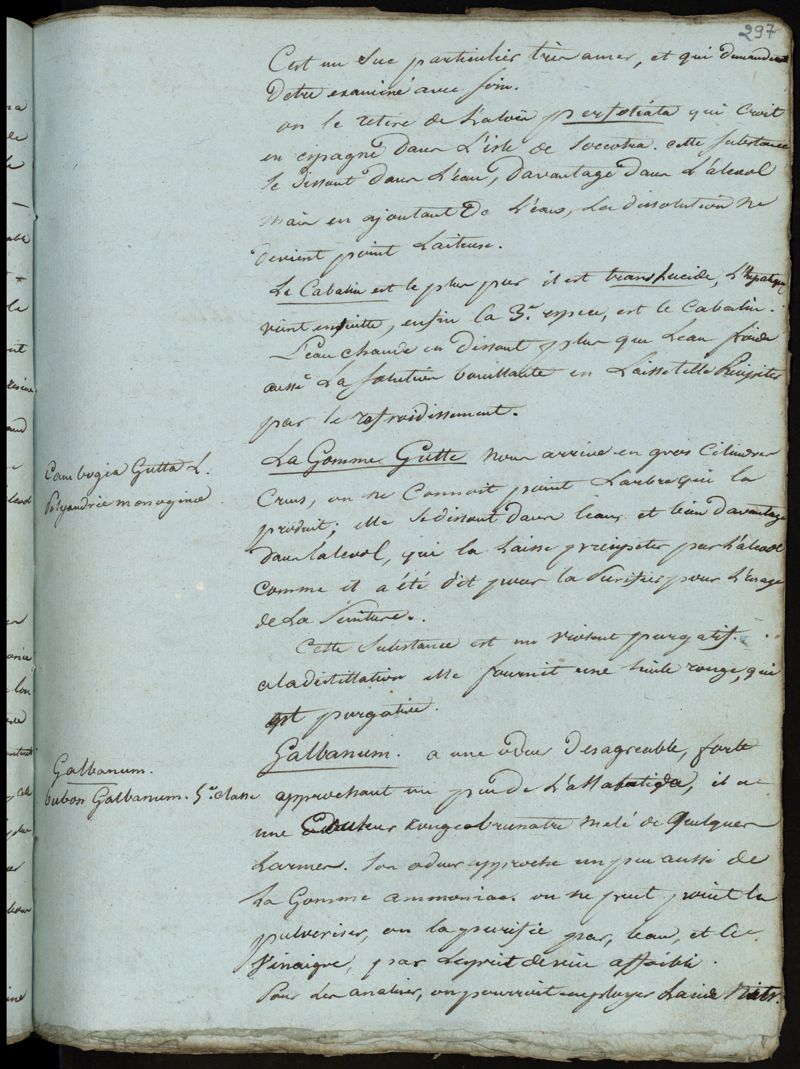 297
C'est un Suc particulier très amer, et qui demande
d'être examiné avec soin.
on le retire de L'aloës perfoliata qui croit
en espagne dans L'isle de Soccotra. cette Substance
se dissout dans L'eau, davantage dans L'alcool
mais en ajoutant de L'eau, La dissolution ne
devient point Laiteuse.
Le Cabalin est le plus pur il est translucide, L'hepatique
vient ensuitte, enfin la 3e. espece, est le Cabalin.
L'eau chaude en dissout plus que L'eau froide
aussi La solution bouillante en Laisse telle Précipiter
par le refroidissement.
Cambogia Gutta L.
Polyandrie monoginie
La Gomme Gutte nous arrive en gros Cilindres
Creux, on ne Connoit point L'arbre qui la
produit; elle se dissout dans L'eau et bien davantage
dans L'alcool, qui la Laisse précipiter par L'alcool
Comme il a été dit pour la Purifier pour L'usage
de La Peinture.
Cette Substance est un violent purgatif.
a la distillation elle fournit une huile rouge, qui
est purgative.
Galbanum.
bubon Galbanum. 5e. classe
Galbanum. a une odeur Desagreable, forte
approchant un peu de L'assafœtida, il a
une Couleur rouge brunatre melé de quelques
Larmes. Son odeur approche un peu aussi de
La Gomme ammoniac. on ne peut point la
pulveriser, on la purifie par, L'eau, et Le
Vinaigre, par L'esprit de vin affoibli.
Pour Les analiser, on pourroit employer L'acide Nitr.